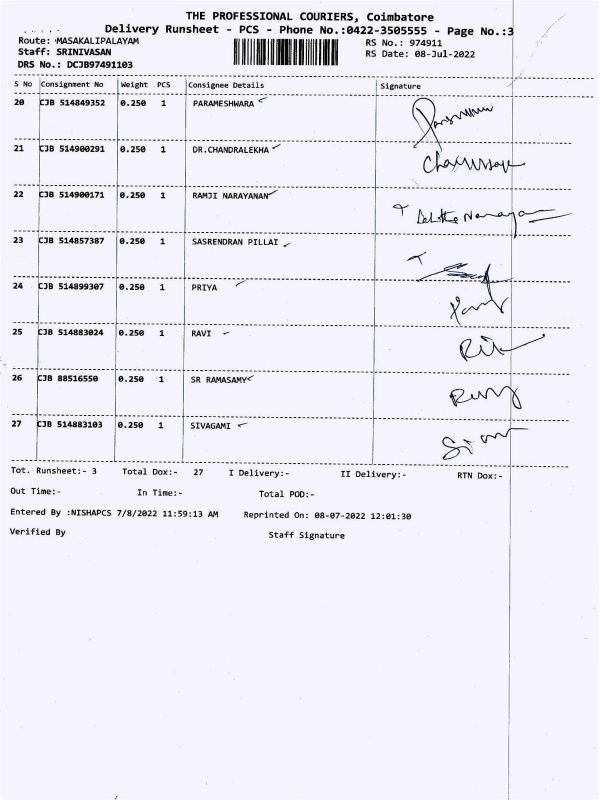 THE PROFESSIONAL COURIERS, Coimbatore
Delivery Runsheet - PCS - Phone No.:0422-3505555 - Page No.:3
Route: MASAKALIPALAYAM RS No.: 974911
Staff: SRINIVASAN RS Date: 08-Jul-2022
DRS No.: DCJB97491103
S No Consignment No Weight PCS Consignee Details Signature
20 CJB 514849352 0.250 1 PARAMESHWARA
21 CJB 514900291 0.250 1 DR.CHANDRALEKHA
22 CJB 514900171 0.250 1 RAMJI NARAYANAN
23 CJB 514857387 0.250 1 SASRENDRAN PILLAI
24 CJB 514899307 0.250 1 PRIYA
25 CJB 514883024 0.250 1 RAVI
26 CJB 88516550 0.250 1 SR RAMASAMY
27 CJB 514883103 0.250 1 SIVAGAMI
Tot. Runsheet:- 3 Total Dox:- 27 I Delivery:- II Delivery:- RTN Dox:-
Out Time:- In Time:- Total POD:-
Entered By :NISHAPCS 7/8/2022 11:59:13 AM Reprinted On: 08-07-2022 12:01:30
Verified By Staff Signature